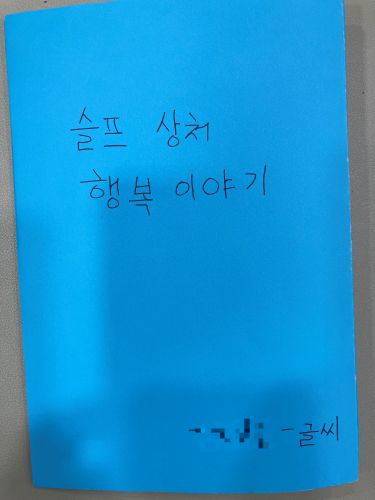 슬프 상처
행복 이야기
-글씨